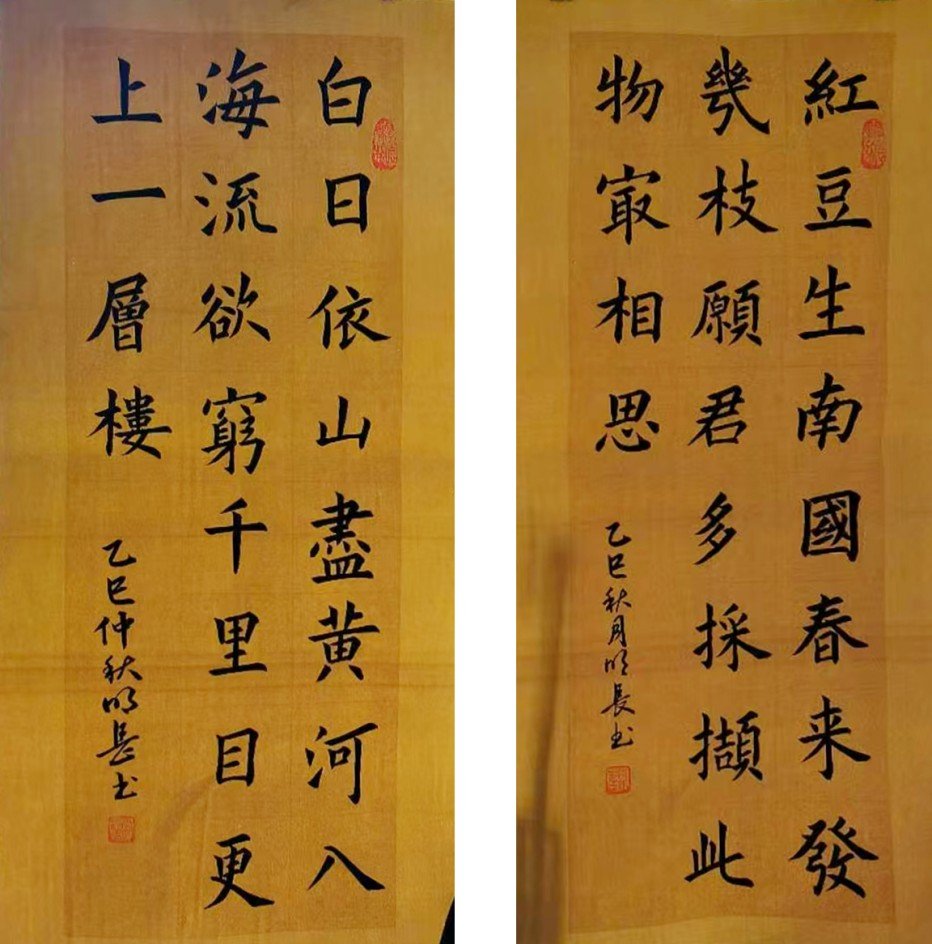 白日依山盡黄河八
海流欲窮千里目更
上一層樓
乙巳仲秋明長书
紅豆生南國春来發
幾枝願君多採擷此
物㝡相思
乙巳秋月明長书